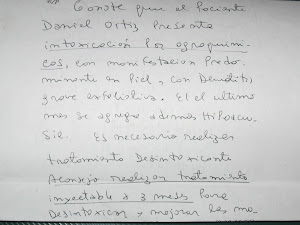 Conste que el Paciente
Daniel Ortiz Presenta
intoxicación por agroquími-
cos, con manifestación Predo-
minante en Piel, con Dermatitis
grave exfoliativa. El el ultimo
mes se agrega además Hipoacu-
sia. Es necesario realizar
tratamiento Desintoxicante
Aconsejo realizar tratamiento
inyectable x 3 meses para
Desintoxicar y mejorar las ma-